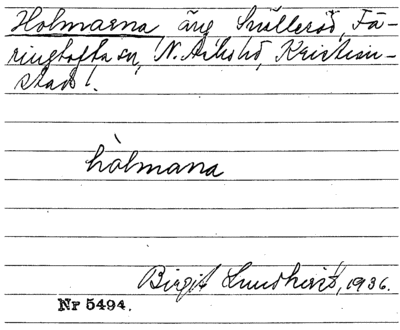 Holmarna äng Snälleröd, Fä-
ringtofta sn, N. Åsbo hd, Kristian-
stads l.
hòlmana
Birgit Lundkvist, 1936.
Nr 5494.